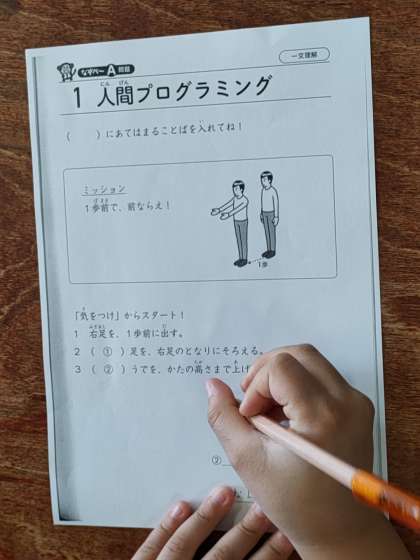 なぞペー A 問題
一文理解
1 人間プログラミング
( )にあてはまることばを入れてね！
ミッション
1歩前で、前ならえ！
1歩
「気をつけ」からスタート！
1 右足を、1歩前に出す。
2 ( ① )足を、右足のとなりにそろえる。
3 ( ② )うでを、かたの高さまで上げ
②